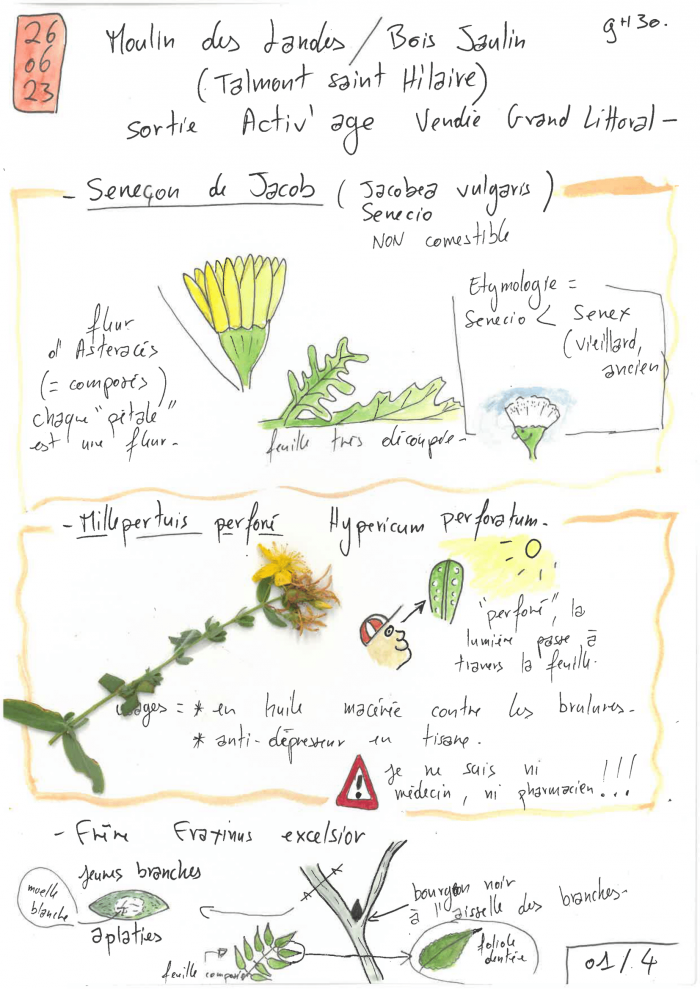 26
06
23
Moulin des Landes / Bois Jaulin
9H30.
(Talmont saint Hilaire)
sortie Activ' age Vendée Grand Littoral -
- Seneçon de Jacob (Jacobea vulgaris)
Senecio
NON comestible
fleur
d'Asteracés
(= composés)
chaque "pétale"
est une fleur.
feuille très découpée -
Etymologie =
Senecio < Senex
(vieillard,
ancien)
- Millepertuis perforé Hypericum perforatum.
"perforé", la
lumière passe à
travers la feuille.
usages = * en huile macérée contre les brulures.
* anti-dépresseur en tisane.
!
je ne suis ni
médecin, ni pharmacien !!!
- Frêne Fraxinus excelsior
jeunes branches
moelle
blanche
aplaties
bourgeon noir
à l'aisselle des branches.
feuille composée
foliole
dentée
01/4